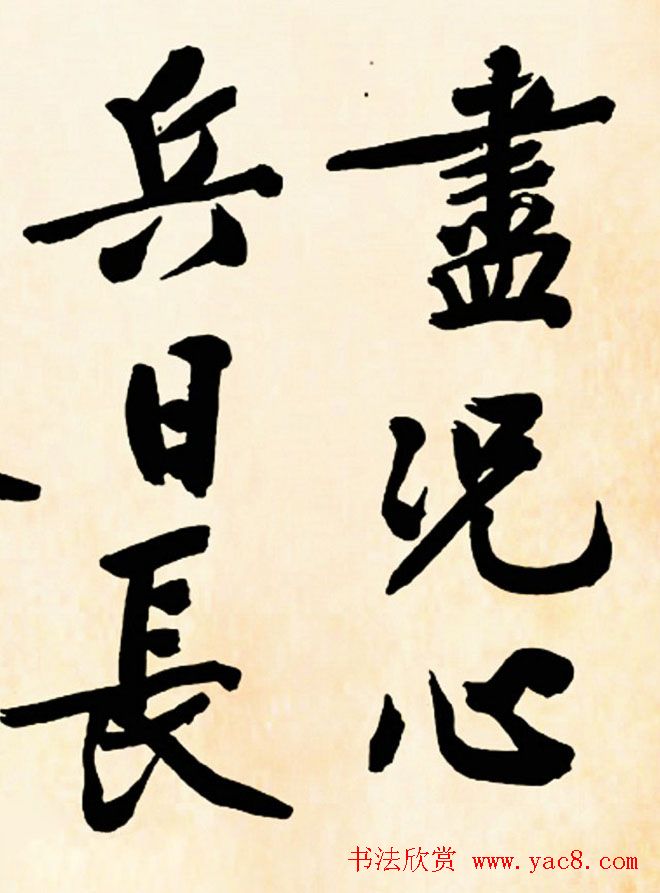 盡況心
兵日長
书法欣赏 www.yac8.com